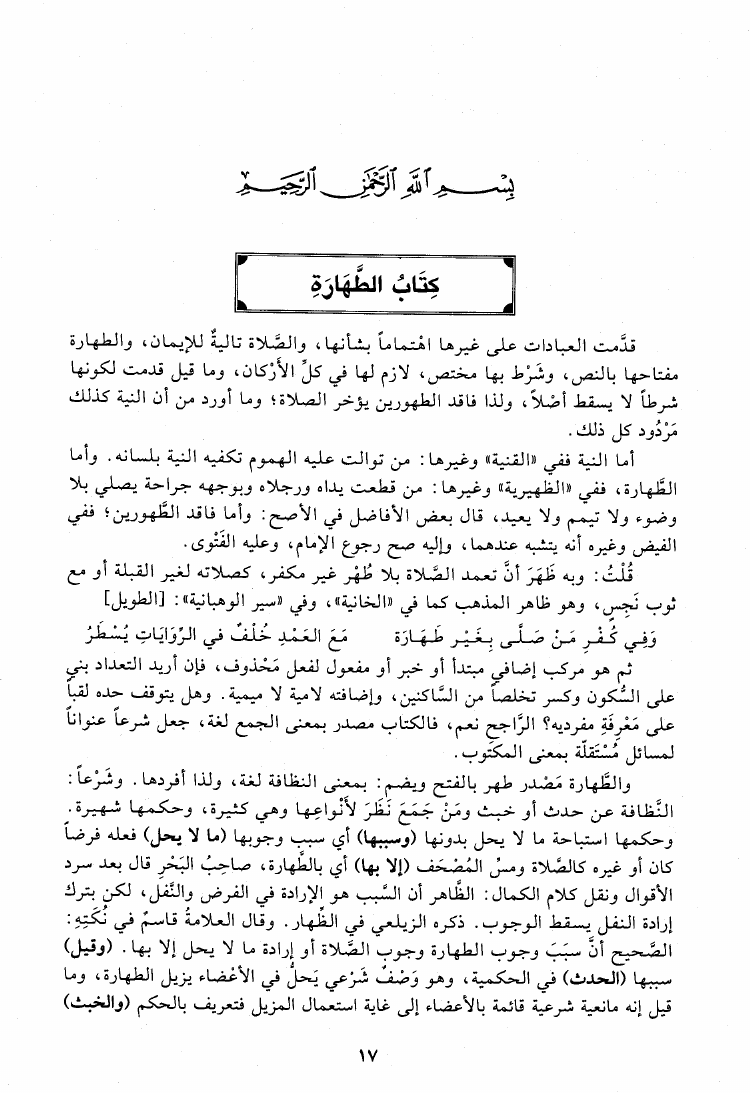 بِسْمِ ٱللَّهِ ٱلرَّحْمَٰنِ ٱلرَّحِيمِ
كِتَابُ الطَّهَارَةِ
قدَّمت العبادات على غيرها اهْتماماً بشأنها، والصَّلاة تاليةٌ للإيمان، والطهارة
مفتاحها بالنص، وشَرْط بها مختص، لازم لها في كلِّ الأَرْكان، وما قيل قدمت لكونها
شرطاً لا يسقط أصْلاً، ولذا فاقد الطهورين يؤخر الصلاة؛ وما أورد من أن النية كذلك
مَرْدُود كل ذلك.
أما النية ففي «القنية» وغيرها: من توالت عليه الهموم تكفيه النية بلسانه. وأما
الطَّهارة، ففي «الظهيرية» وغيرها: من قطعت يداه ورجلاه وبوجهه جراحة يصلي بلا
وضوء ولا تيمم ولا يعيد، قال بعض الأفاضل في الأصح: وأما فاقد الطَّهورين؛ ففي
الفيض وغيره أنه يتشبه عندهما، وإليه صح رجوع الإمام، وعليه الفَتْوى.
قُلْتُ: وبه ظَهَرَ أنَّ تعمد الصَّلاة بلا طُهْر غير مكفر، كصلاته لغير القبلة أو مع
ثوب نَجِسٍ، وهو ظاهر المذهب كما في «الخانية»، وفي «سير الوهبانية»: [الطويل]
وَفِي كُفْرِ مَنْ صَلَّى بِغَيْرِ طَهَارَة مَعَ العَمْدِ خُلْفٌ في الرِّوَايَاتِ يُسْطَرُ
ثم هو مركب إضافي مبتدأ أو خبر أو مفعول لفعل مَحْذوف، فإن أريد التعداد بني
على السُّكون وكسر تخلصاً من السَّاكنين، وإضافته لامية لا ميمية. وهل يتوقف حده لقباً
على مَعْرِفَةِ مفرديه؟ الرَّاجح نعم، فالكتاب مصدر بمعنى الجمع لغة، جعل شرعاً عنواناً
لمسائل مُسْتَقلّة بمعنى المكتوب.
والطَّهارة مَصْدر طهر بالفتح ويضم: بمعنى النظافة لغة، ولذا أفردها. وشَرْعاً:
النَّظافة عن حدث أو خبث ومَنْ جَمَعَ نَظَرَ لأَنْواعِها وهي كثيرة، وحكمها شهيرة.
وحكمها استباحة ما لا يحل بدونها (وسببها) أي سبب وجوبها (ما لا يحل) فعله فرضاً
كان أو غيره كالصَّلاة ومسِّ المُصْحَف (إلا بها) أي بالطَّهارة، صاحِبُ البَحْرِ قال بعد سرد
الأقوال ونقل كلام الكمال: الظَّاهر أن السَّبب هو الإرادة في الفرض والنَّفل، لكن بترك
إرادة النفل يسقط الوجوب. ذكره الزيلعي في الظِّهار. وقال العلامةُ قاسمٌ في نُكَتِهِ:
الصَّحيح أنَّ سبَبَ وجوب الطهارة وجوب الصَّلاة أو إرادة ما لا يحل إلا بها. (وقيل)
سببها (الحدث) في الحكمية، وهو وَصْفٌ شَرْعي يَحلُّ في الأعْضاء يزيل الطهارة، وما
قيل إنه مانعية شرعية قائمة بالأعضاء إلى غاية استعمال المزيل فتعريف بالحكم (والخبث)
١٧